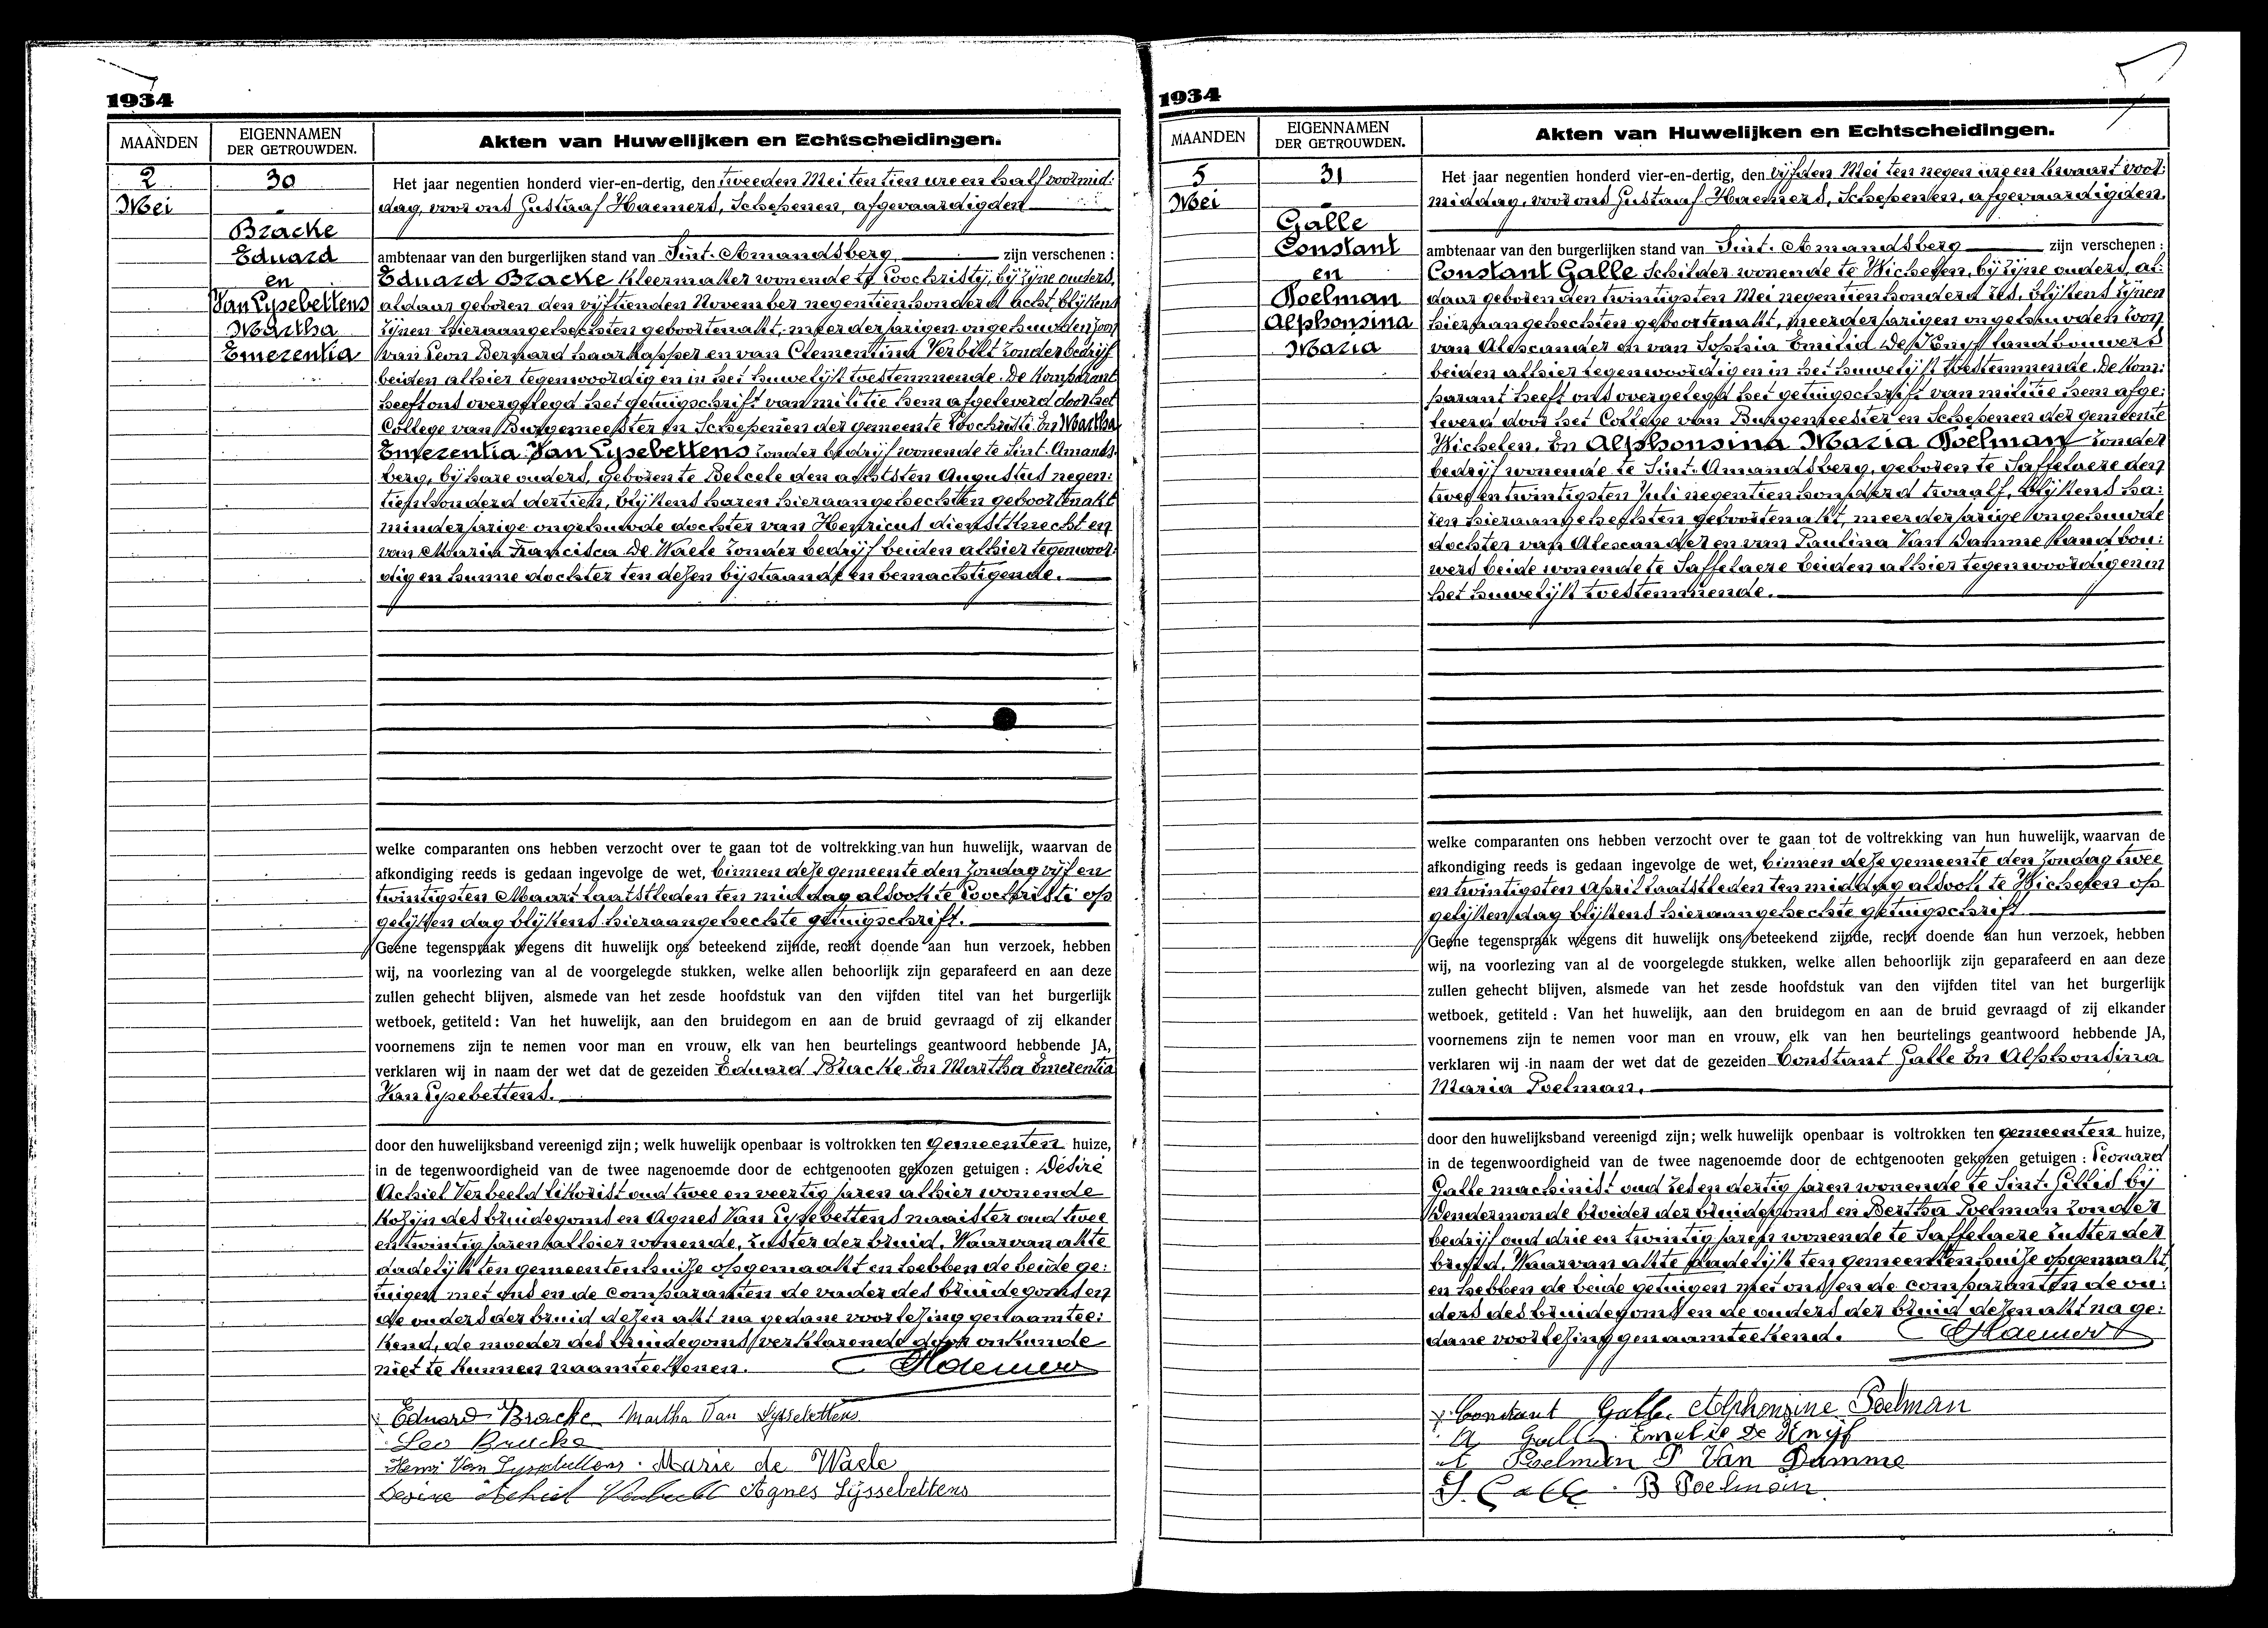 1934
MAANDEN
EIGENNAMEN
DER GETROUWDEN.
Akten van Huwelijken en Echtscheidingen.
2
Mei
30
Bracke
Eduard
en
Van Lysebettens
Martha
Emerentia
Het jaar negentien honderd vier-en-dertig, den tweeden Mei ten tien ure en half voormid:
dag, voor ons Gustaaf Haemers, Schepenen, afgevaardigden
ambtenaar van den burgerlijken stand van Sint-Amandsberg zijn verschenen :
Eduard Bracke kleermaker wonende te Loochristy, bij zijne ouders,
aldaar geboren den vijftienden November negentienhonderd acht, blijkens
zijnen hieraangehechten geboortenakt, meerderjarigen ongehuwden zoon
van Leon Bernard haarkapper en van Clementina Verbilt zonder bedrijf
beiden alhier tegenwoordig en in het huwelijk toestemmende. De komparant
heeft ons overgelegd het getuigschrift van militie hem afgeleverd door het
College van Burgemeester en Schepenen der gemeente Loochristi. En Martha
Emerentia Van Lysebettens zonder bedrijf wonende te Sint-Amands:
berg, bij hare ouders, geboren te Belcele den achtsten Augustus negen:
tienhonderd dertien, blijkens haren hieraangehechten geboortenakt
minderjarige ongehuwde dochter van Henricus dienstknecht en
van Maria Francisca De Waele zonder bedrijf beiden alhier tegenwoor:
dig en hunne dochter ten dezen bijstaande en bemachtigende.
welke comparanten ons hebben verzocht over te gaan tot de voltrekking van hun huwelijk, waarvan de
afkondiging reeds is gedaan ingevolge de wet, binnen deze gemeente den Zondag vijf en
twintigsten Maart laatstleden ten middag alsook te Loochristi op
gelijken dag blijkens hieraangehechte getuigschrift.
Geene tegenspraak wegens dit huwelijk ons beteekend zijnde, recht doende aan hun verzoek, hebben
wij, na voorlezing van al de voorgelegde stukken, welke allen behoorlijk zijn geparafeerd en aan deze
zullen gehecht blijven, alsmede van het zesde hoofdstuk van den vijfden titel van het burgerlijk
wetboek, getiteld : Van het huwelijk, aan den bruidegom en aan de bruid gevraagd of zij elkander
voornemens zijn te nemen voor man en vrouw, elk van hen beurtelings geantwoord hebbende JA,
verklaren wij in naam der wet dat de gezeiden Eduard Bracke. En Martha Emerentia
Van Lysebettens.
door den huwelijksband vereenigd zijn ; welk huwelijk openbaar is voltrokken ten gemeenten huize,
in de tegenwoordigheid van de twee nagenoemde door de echtgenooten gekozen getuigen : Désiré
Achiel Verbeeld likorist oud twee en veertig jaren alhier wonende
kozijn des bruidegoms en Agnes Van Lysebettens naaister oud twee
en twintig jaren alhier wonende, zuster der bruid. Waarvan akte
dadelijk ten gemeentenhuize opgemaakt en hebben de beide ge:
tuigen met ons en de comparanten de vader des bruidegoms en
de ouders der bruid dezen akt na gedane voorlezing genaamtee:
kend, de moeder des bruidegoms verklarende door onkunde
niet te kunnen naamteekenen. GHaemers
Eduard Bracke Martha Van Lyssebettens
Leo Bracke
Henri Van Lyssebettens. Marie de Waele
Desire Achiel Verbeeld Agnes Lijssebettens
1934
MAANDEN
EIGENNAMEN
DER GETROUWDEN.
Akten van Huwelijken en Echtscheidingen.
5
Mei
31
Galle
Constant
en
Poelman
Alphonsina
Maria
Het jaar negentien honderd vier-en-dertig, den vijfden Mei ten negen ure en kwaart voor:
middag, voor ons Gustaaf Haemers, Schepenen, afgevaardigden.
ambtenaar van den burgerlijken stand van Sint-Amandsberg zijn verschenen :
Constant Galle schilder wonende te Wichelen, bij zijne ouders, al:
daar geboren den twintigsten Mei negentienhonderd zes, blijkens zijnen
hieraangehechten geboortenakt, meerderjarigen ongehuwden zoon
van Alexander en van Sophia Emilia De Knyf landbouwers
beiden alhier tegenwoordig en in het huwelijk toestemmende. De kom:
parant heeft ons overgelegd het getuigschrift van militie hem afge:
leverd door het College van Burgemeester en Schepenen der gemeente
Wichelen. En Alphonsina Maria Poelman zonder
bedrijf wonende te Sint-Amandsberg, geboren te Saffelaere den
twee en twintigsten Juli negentienhonderd twaalf, blijkens ha:
ren hieraangehechten geboortenakt, meerderjarige ongehuwde
dochter van Alexander en van Paulina Van Damme landbou:
wers beide wonende te Saffelaere beiden alhier tegenwoordig en in
het huwelijk toestemmende.
welke comparanten ons hebben verzocht over te gaan tot de voltrekking van hun huwelijk, waarvan de
afkondiging reeds is gedaan ingevolge de wet, binnen deze gemeente den Zondag twee
en twintigsten April laatstleden ten middag alsook te Wichelen op
gelijken dag blijkens hieraangehechte getuigschrift
Geene tegenspraak wegens dit huwelijk ons beteekend zijnde, recht doende aan hun verzoek, hebben
wij, na voorlezing van al de voorgelegde stukken, welke allen behoorlijk zijn geparafeerd en aan deze
zullen gehecht blijven, alsmede van het zesde hoofdstuk van den vijfden titel van het burgerlijk
wetboek, getiteld : Van het huwelijk, aan den bruidegom en aan de bruid gevraagd of zij elkander
voornemens zijn te nemen voor man en vrouw, elk van hen beurtelings geantwoord hebbende JA,
verklaren wij in naam der wet dat de gezeiden Constant Galle En Alphonsina
Maria Poelman.
door den huwelijksband vereenigd zijn ; welk huwelijk openbaar is voltrokken ten gemeenten huize,
in de tegenwoordigheid van de twee nagenoemde door de echtgenooten gekozen getuigen : Leonard
Galle machinist oud zes en dertig jaren wonende te Sint-Gillis bij
Dendermonde broeder der bruidegoms en Bertha Poelman zonder
bedrijf oud drie en twintig jaren wonende te Saffelaere zuster der
bruid. Waarvan akte dadelijk ten gemeentenhuize opgemaakt
en hebben de beide getuigen met ons en de comparanten de ou:
ders des bruidegoms en de ouders der bruid dezen akt na ge:
dane voorlezing genaamteekend. GHaemers
Constant Galle. Alphonsine Poelman
A Galle. Emelie De Knijf
A Poelman P Van Damme
L. Galle. B Poelman